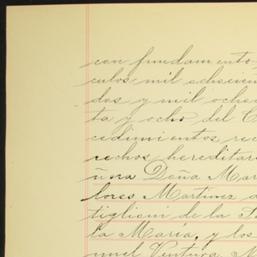 con fundamento
culos mil ochocien
dos y mil ochoc
ta y ocho del C
cedimientos re
rechos hereditari
ñora Doña Mar
lores Martinez
tiglieni de la
la Maria, y los
nuel Ventura M